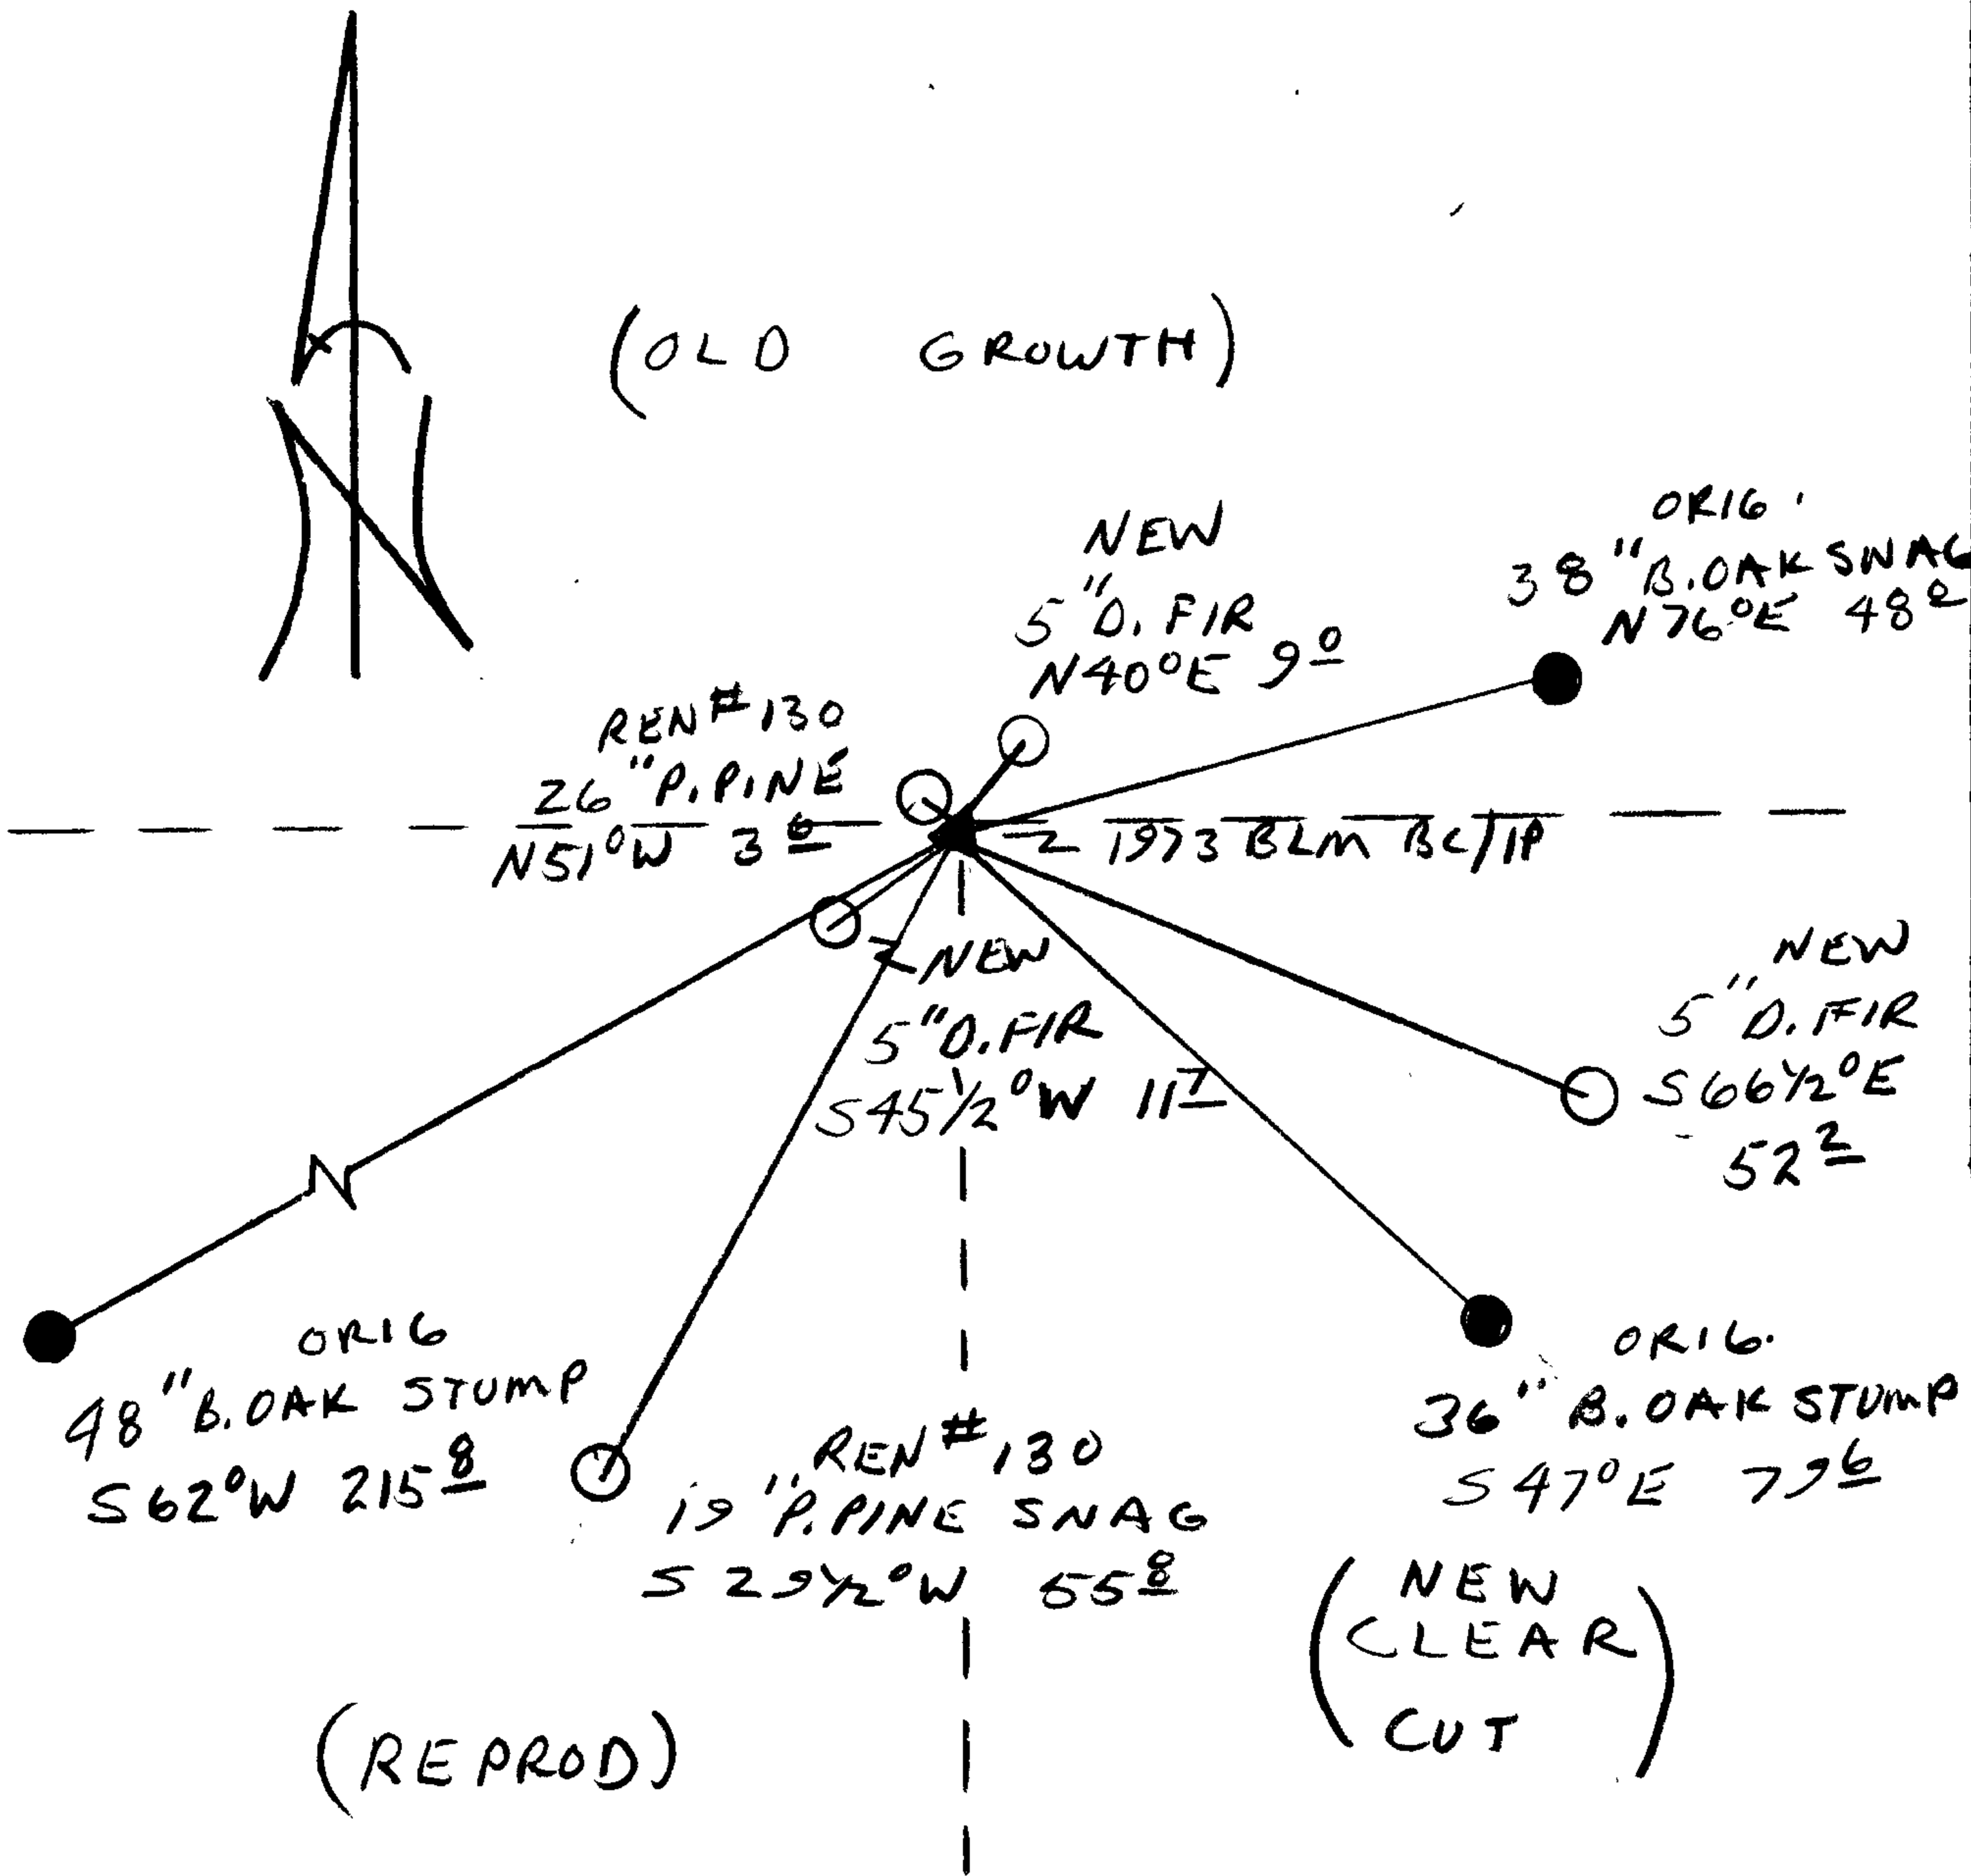 (OLD GROWTH)
NEW
5" D. FIR
N40°E 9 0
ORIG.
38" B. OAK SNAG
N76°E 48
REN #130
26" P. PINE
N51°W 3
1973 BLM BC/IP
NEW
5" D. FIR
S45 1/2°W 11 7
NEW
5" D. FIR
S66 1/2°E
52 2
ORIG
48" B. OAK STUMP
S62°W 215 8
REN #130
19" P. PINE SNAG
S29 1/2°W 55 8
ORIG.
36" B. OAK STUMP
S47°E 79 6
(NEW
CLEAR
CUT)
(REPROD)
N